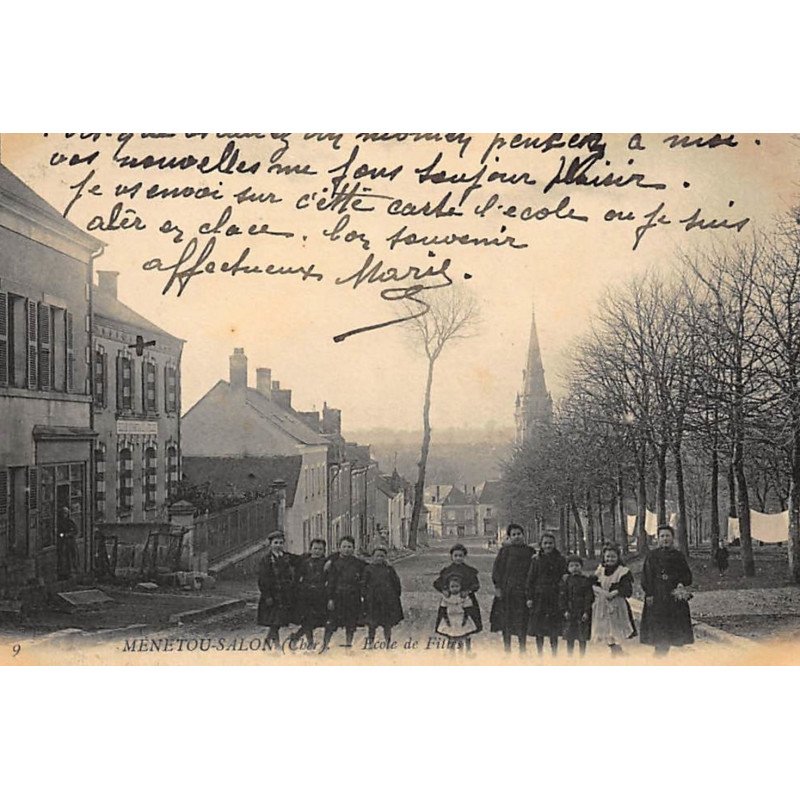 vos nouvelles me fons toujour plaisir.
Je vs envoi sur c'ètte carte l'ecole ou je suis
alèr en clace. bon souvenir
affectueux Marie.
9 MENETOU-SALON (Cher). — Ecole de Filles